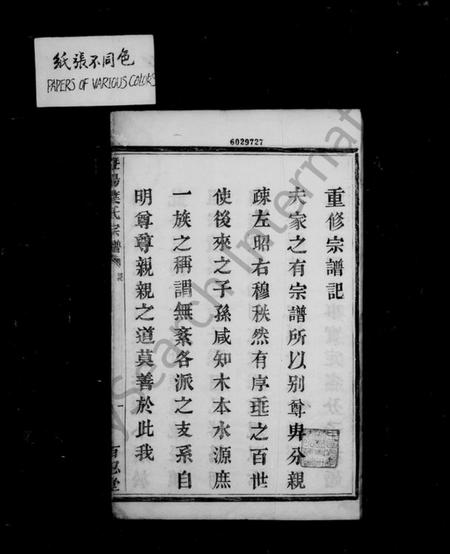 紙張不同色
PAPERS OF VARIOUS COLORS
6029727
重修宗譜記
夫家之有宗譜所以别尊卑分親
疎左昭右穆秩然有序垂之百世
使後來之子孫咸知木本水源庶
一族之稱謂無紊各派之支系自
明尊尊親親之道莫善於此我
暨陽 氏宗譜
記
一
百忍堂